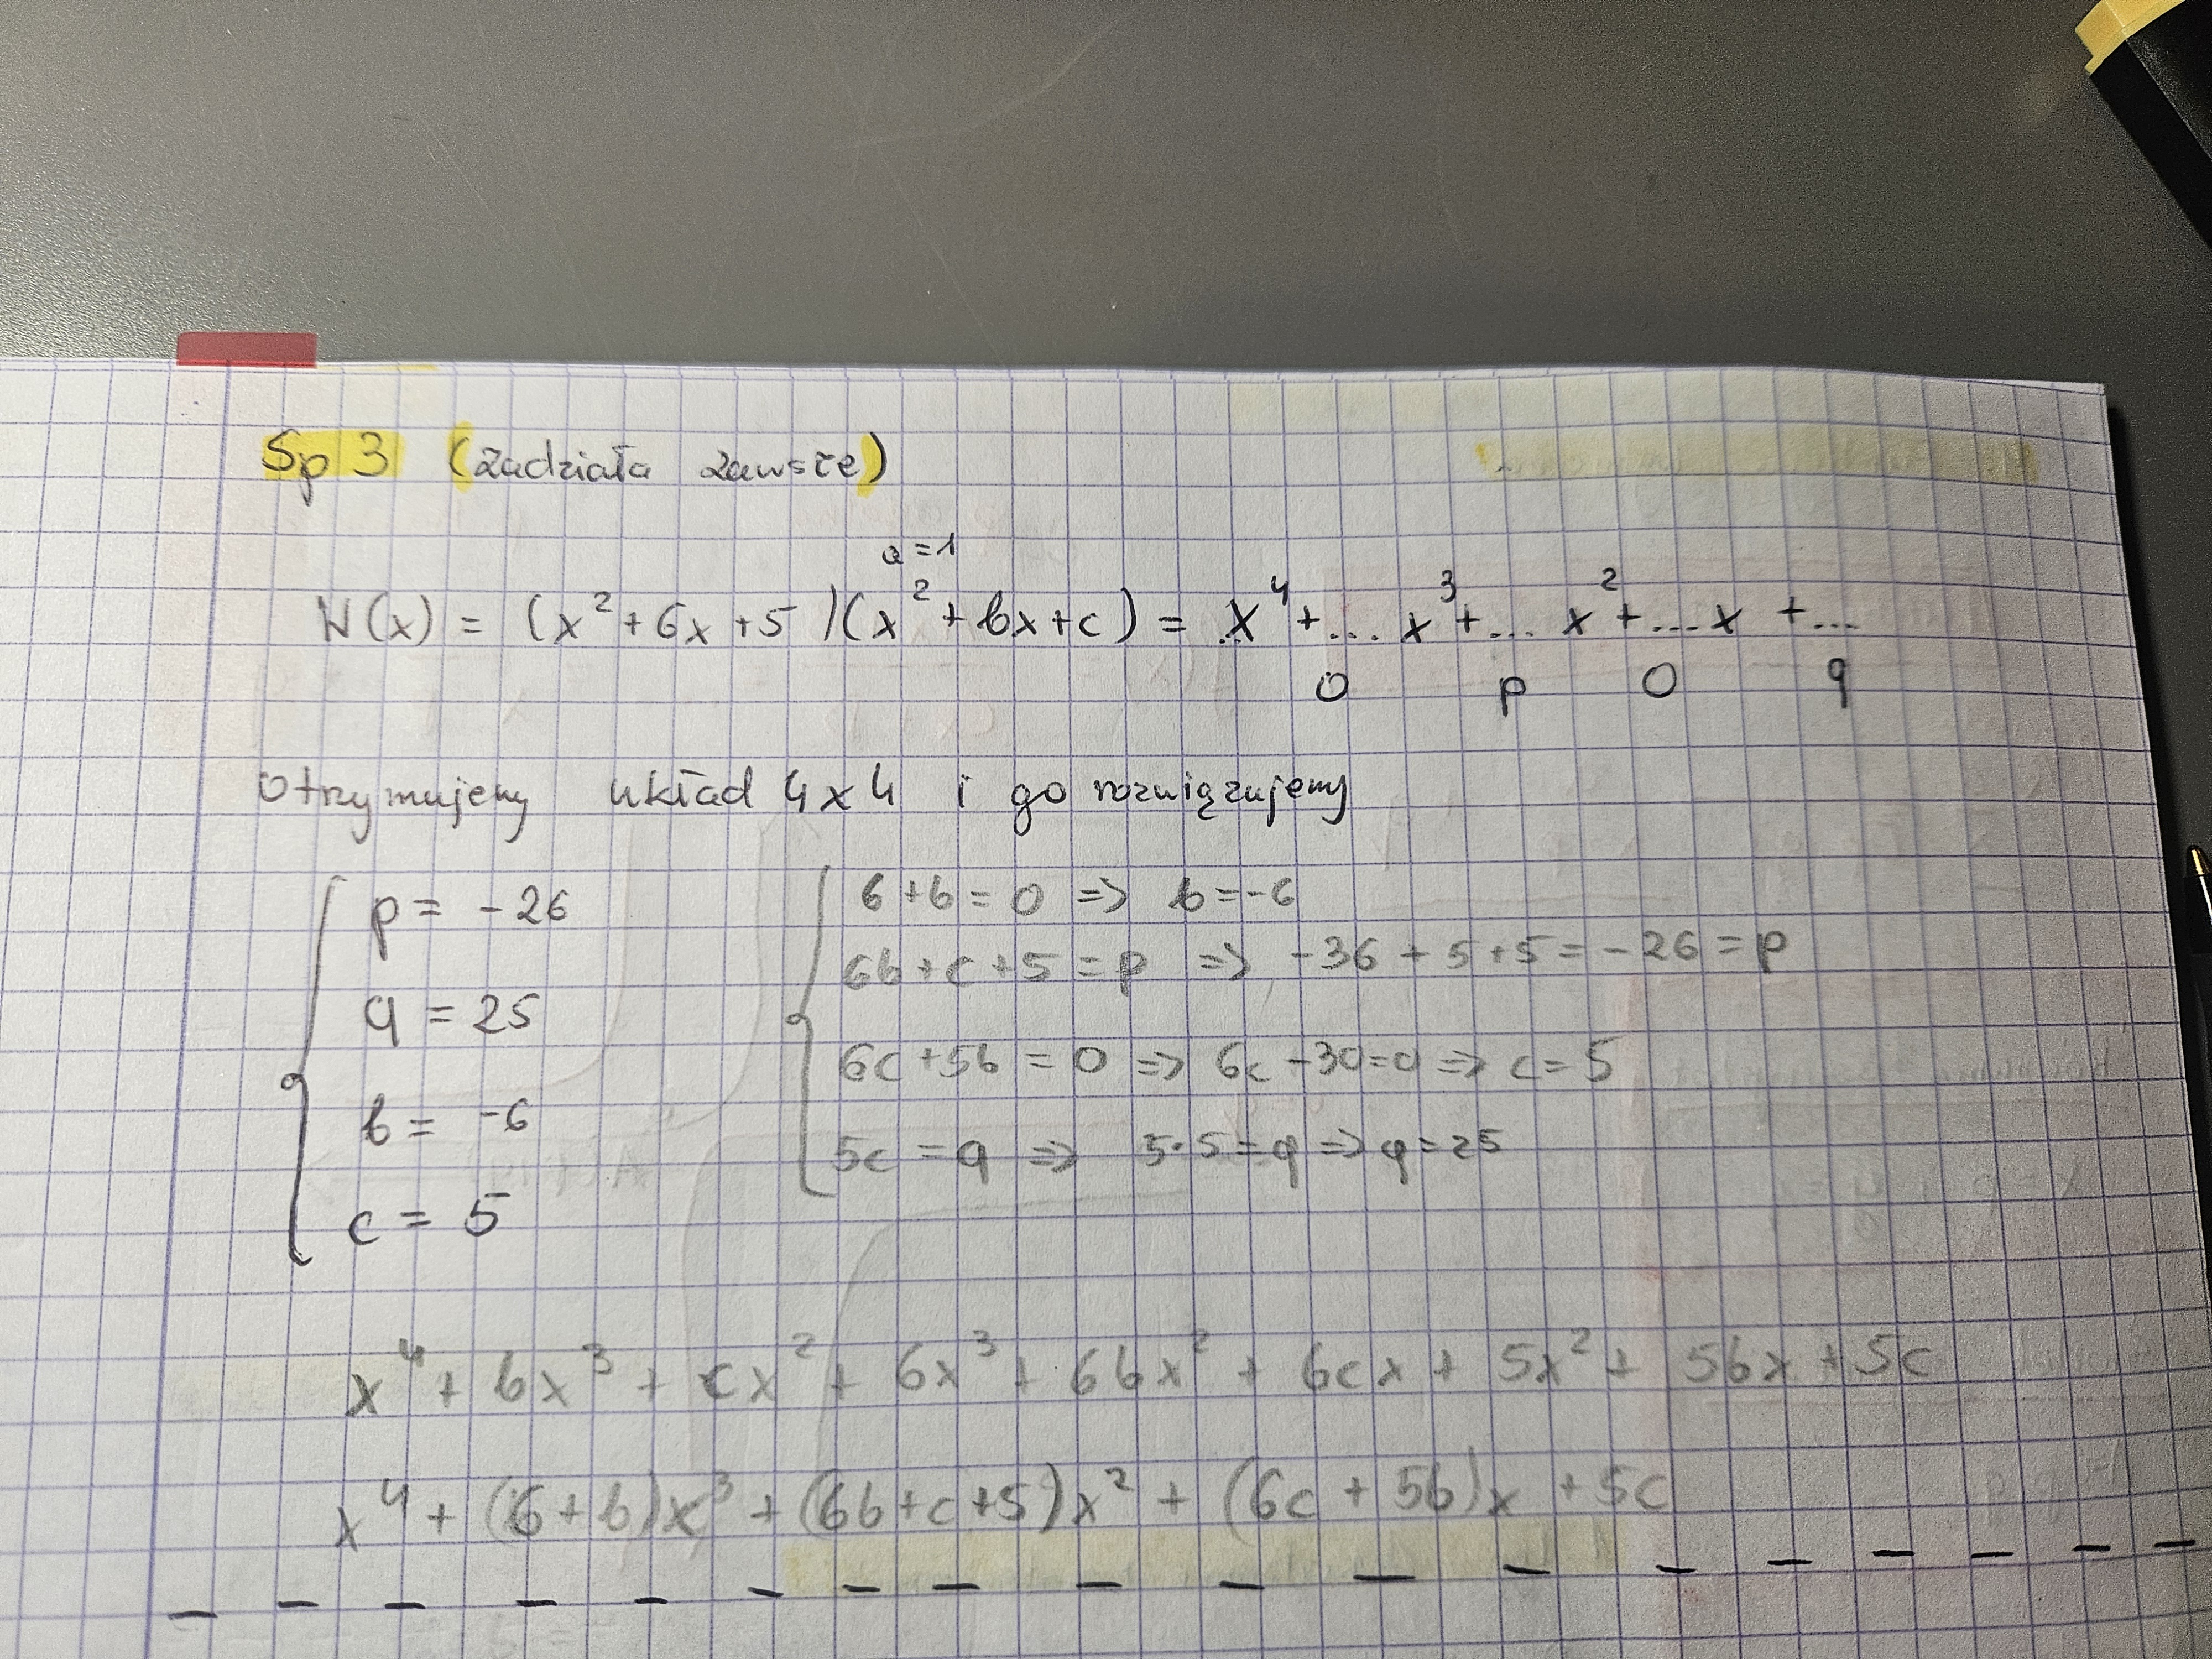 Sp 3 (zadziała zawsze)
a=1
W(x) = (x²+6x+5)(x²+bx+c) = x⁴+...x³+...x²+...x+...
0 p 0 q
Otrzymujemy układ 4x4 i go rozwiązujemy
p = -26
q = 25
b = -6
c = 5
6+b=0 => b=-6
6b+c+5=p => -36+5+5=-26=p
6c+5b=0 => 6c-30=0 => c=5
5c=q => 5·5=q => q=25
x⁴+bx³+cx²+6x³+6bx²+6cx+5x²+5bx+5c
x⁴+(6+b)x³+(6b+c+5)x²+(6c+5b)x+5c